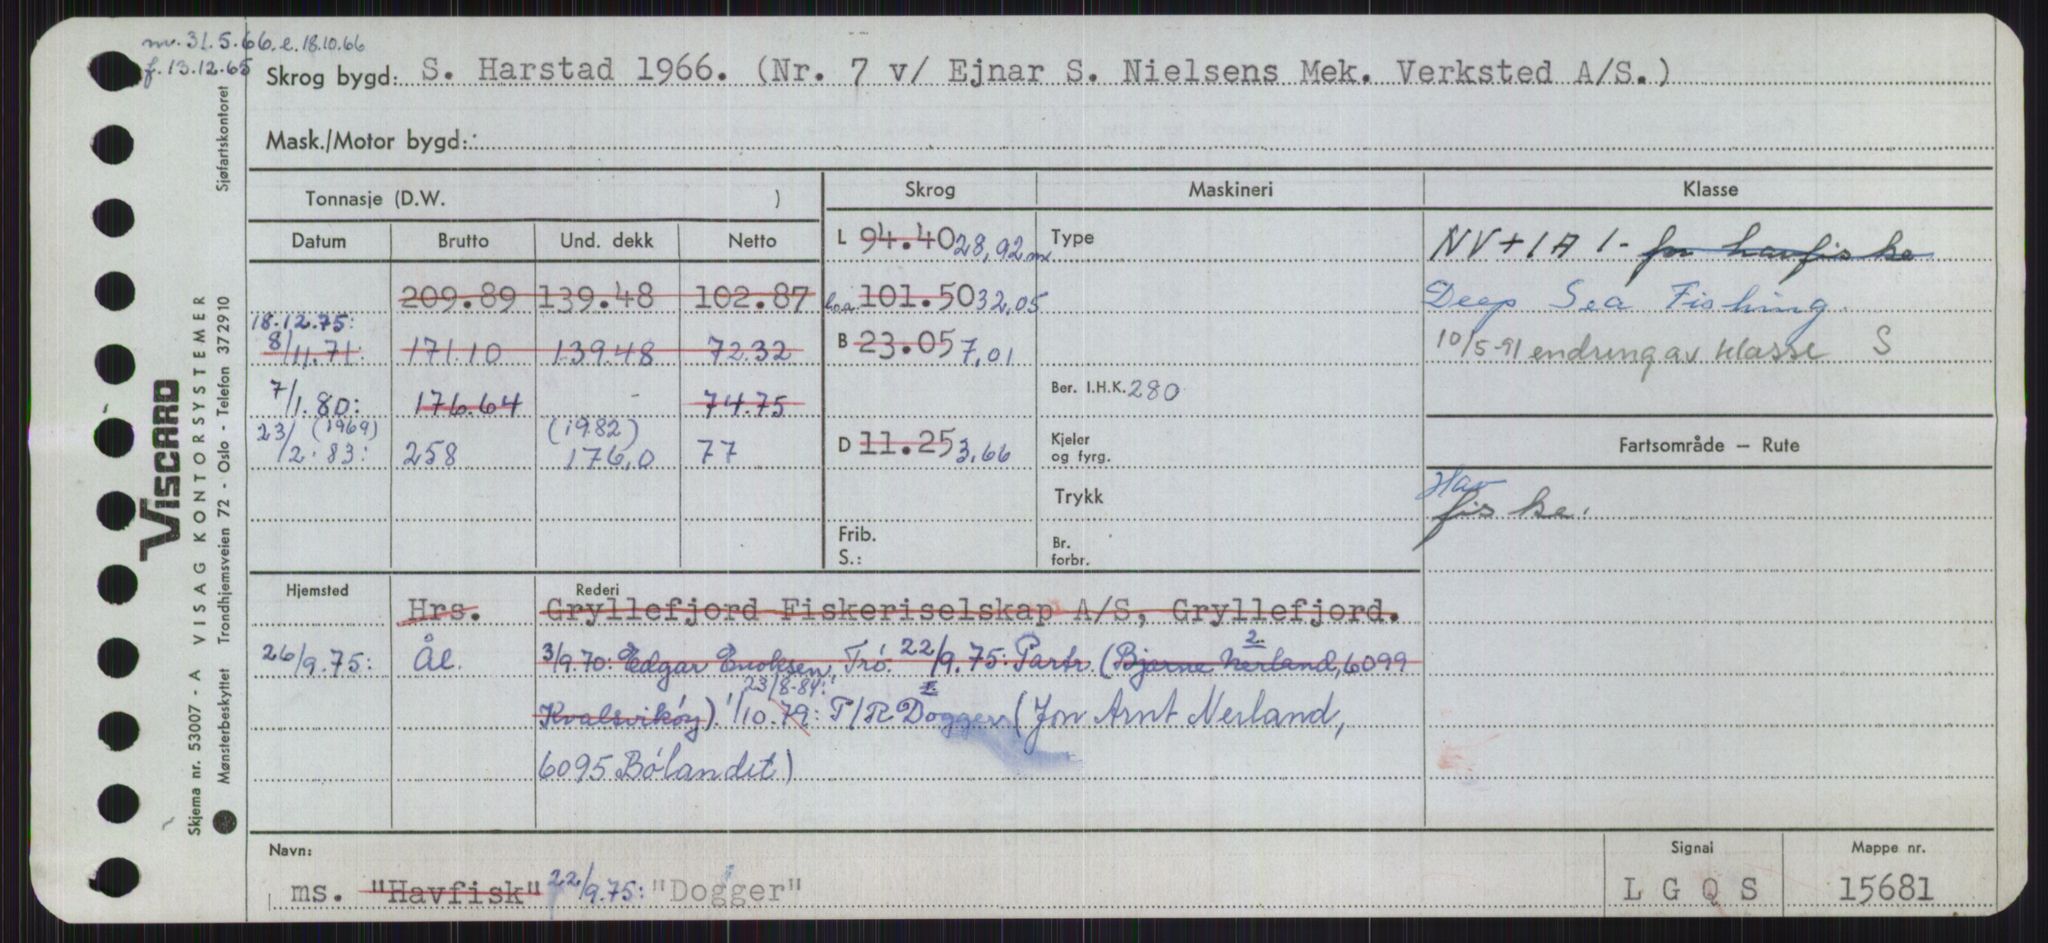 nv. 31.5.66. e. 18.10.66
f. 13.12.65
Skrog bygd: S. Harstad 1966. (Nr. 7 v/ Ejnar S. Nielsens Mek. Verksted A/S.)
Mask./Motor bygd:
Tonnasje (D.W. )
Skrog Maskineri Klasse
Datum Brutto Und. dekk Netto
L 94.40 28,92 m Type
NV+1A1- for havfiske
209.89 139.48 102.87
loa 101.50 32,05
Deep Sea Fishing.
18.12.75:
8/11.71: 171.10 139.48 72.32
B 23.05 7,01
10/5-91 endring av klasse S
7/1.80: 176.64 - 74.75
Ber. I.H.K. 280
23/2.83: (1969) 258 (1982) 176,0 77
D 11.25 3,66
Kjeler
og fyrg.
Fartsområde – Rute
Trykk
Hav
fiske.
Frib.
S.:
Br.
forbr.
Hjemsted Rederi
Hrs. Gryllefjord Fiskeriselskap A/S, Gryllefjord.
26/9.75: Ål. 3/9.70: Edgar Enoksen, Trö. 22/9.75: Partr. (Bjarne Nerland, 6099
2.
23/8-84:
Kvalsvikøy) 1/10.79: P/R Dogger I (Jon Arnt Nerland,
6095 Bölandet)
Navn: Signal Mappe nr.
ms. "Havfisk" 22/9.75: "Dogger" L G Q S 15681
VISCARD
Skjema nr. 53007 - A VISAG KONTORSYSTEMER
Mønsterbeskyttet Trondhjemsveien 72 - Oslo - Telefon 37 29 10 Sjøfartskontoret